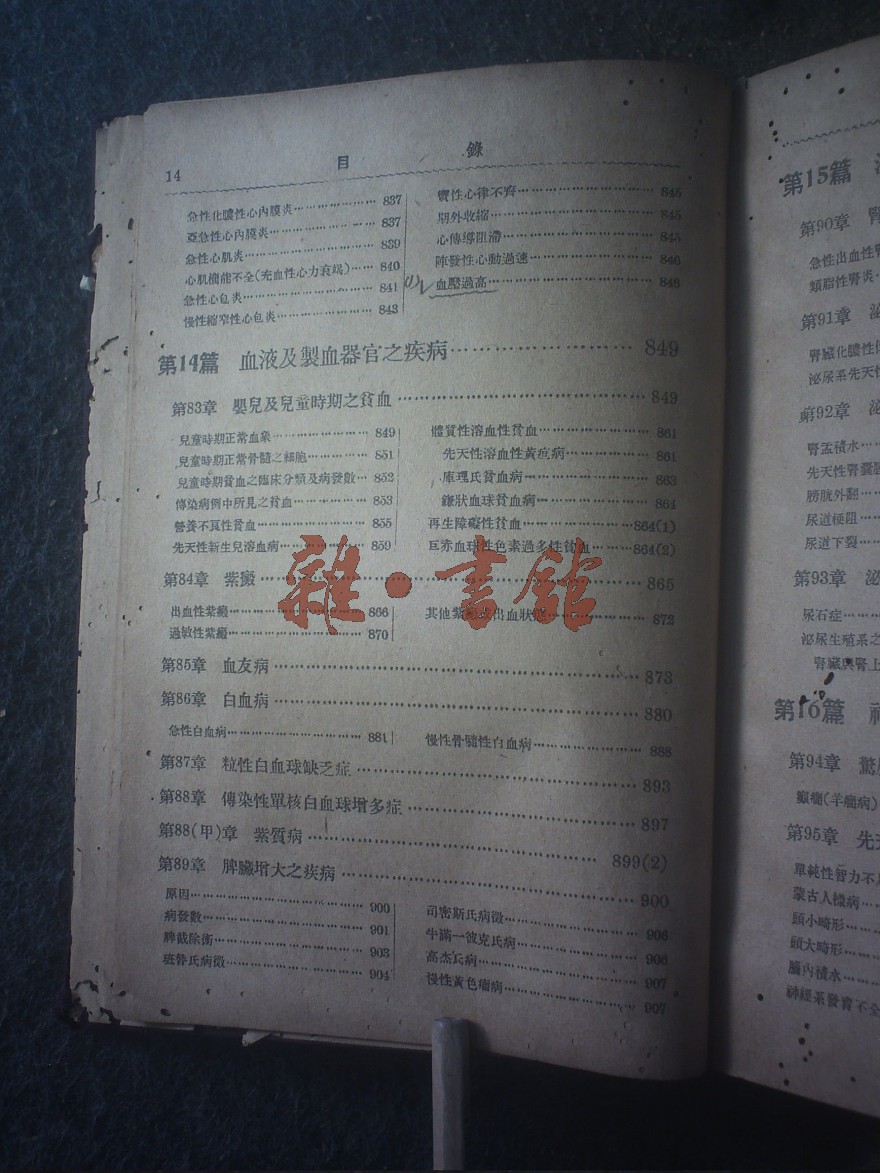 14 目 錄
急性化膿性心內膜炎 837
亞急性心內膜炎 837
急性心肌炎 839
心肌機能不全(充血性心力衰竭) 840
急性心包炎 841
慢性縮窄性心包炎 843
竇性心律不齊 845
期外收縮 845
心傳導阻滯 845
陣發性心動過速 846
血壓過高 846
第14篇 血液及製血器官之疾病 849
第83章 嬰兒及兒童時期之貧血 849
兒童時期正常血象 849
兒童時期正常骨髓之細胞 851
兒童時期貧血之臨床分類及病發數 852
傳染病例中所見之貧血 853
營養不良性貧血 855
先天性新生兒溶血病 859
體質性溶血性貧血 861
先天性溶血性黃疸病 861
庫理氏貧血病 863
鐮狀血球貧血病 864
再生障礙性貧血 864(1)
巨赤血球性色素過多性貧血 864(2)
第84章 紫癜 865
出血性紫癜 866
過敏性紫癜 870
其他紫癜或出血狀態 872
第85章 血友病 873
第86章 白血病 880
急性白血病 881
慢性骨髓性白血病 888
第87章 粒性白血球缺乏症 893
第88章 傳染性單核白血球增多症 897
第88(甲)章 紫質病 899(2)
第89章 脾臟增大之疾病 900
原因 900
病發數 901
脾截除術 903
班替氏病徵 904
司密斯氏病徵 906
牛滿一彼克氏病 906
高杰氏病 907
慢性黃色瘤病 907
雜·書館
第15篇
第90章 腎
急性出血性腎
類脂性腎炎
第91章 泌
腎臟化膿性
泌尿系先天性
第92章 泌
腎盂積水
先天性腎囊
膀胱外翻
尿道梗阻
尿道下裂
第93章 泌
尿石症
泌尿生殖系之
腎臟與腎上
第16篇 神
第94章 驚
癲癇(羊癇病)
第95章 先天
單純性智力不
蒙古人樣病
頭小畸形
頭大畸形
腦內積水
神經系發育不全